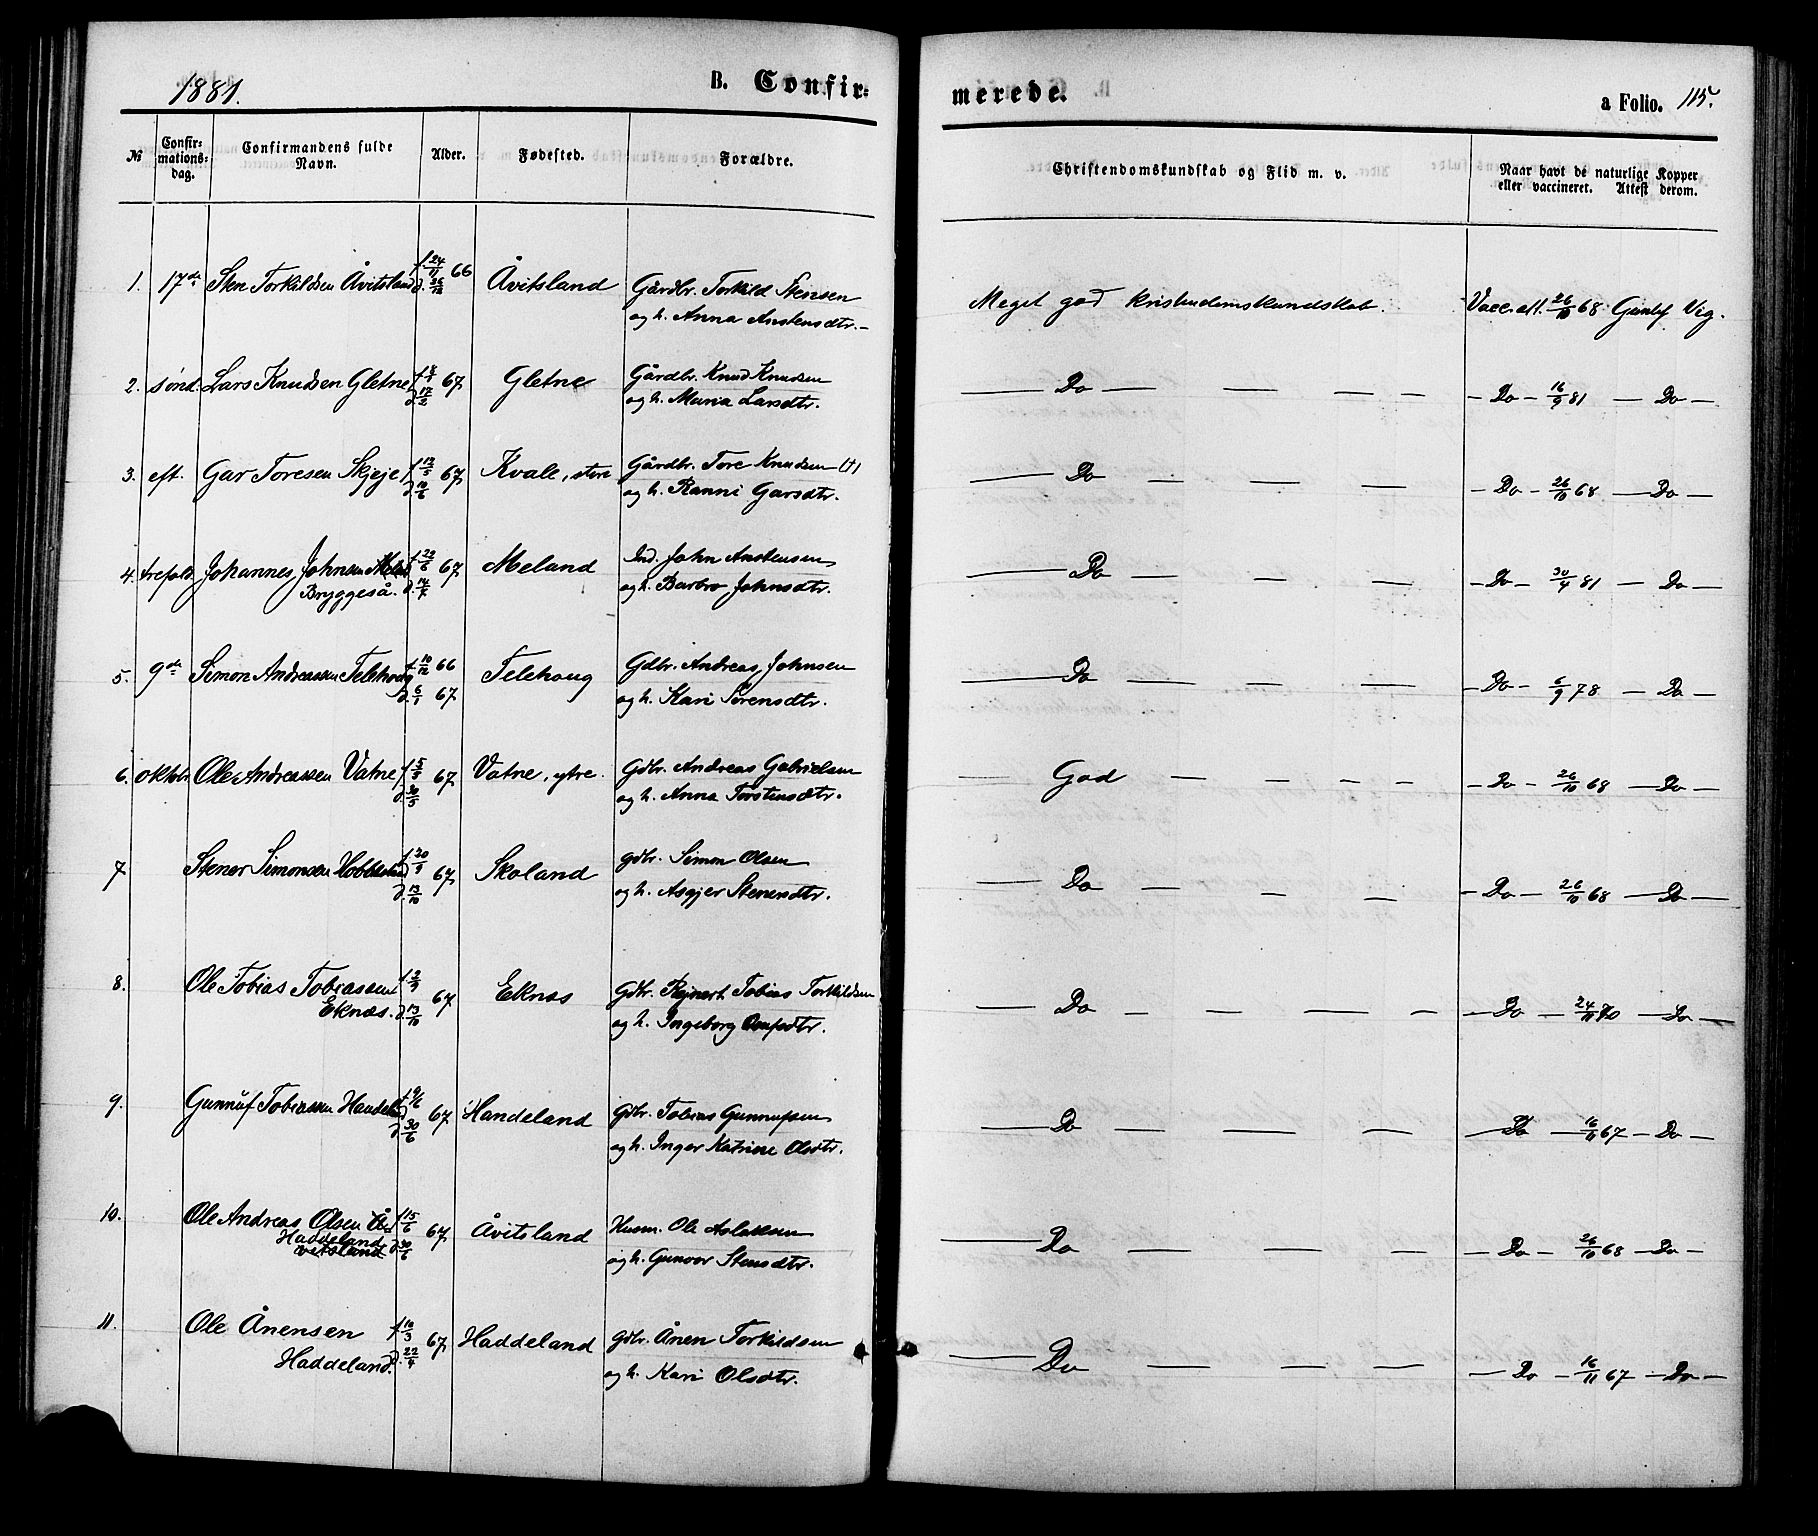 1881.
B. Confir=
merede.
a Folio. 115.
№
Confir=
mations=
dag.
Confirmandens fulde
Navn.
Alder.
Fødested.
Forældre.
Christendomskundskab og Flid m. v.
Naar havt de naturlige Kopper
eller vaccineret. Attest derom.
1. 17de Sten Torkildsen Åvitsland f. 24/11 66 d. 26/12 Åvitsland Gårdbr. Torkild Stensen
og h. Anna Anstensdtr.
Meget god kristendomskundskab. Vacc. att. 26/10 68 Gunlf Vig.
2. sønd. Lars Knudsen Gletne 67 d. 17/2 Gletne Gårdbr. Knud Knudsen
og h. Maria Larsdtr.
— Do — — — — — Do — 16/9 81 — Do —
3. eft. Gar Toresen Skjeje f. 12/5 67 d. 10/6 Kvale, store Gårdbr. Tore Knudsen (†)
og h. Ranni Garsdtr.
— Do — — — — Do — 26/10 68 — Do —
4. trefold. Johannes Johnsen
Bryggeså. f. 22/6 67 d. 14/7 Meland Ind. John Anstensen
og h. Barbro Johnsdtr.
— Do — — — — Do — 30/4 81 — Do —
5. 9de Simon Andreassen Telehoug f. 10/12 66 d. 6/1 67 Telehoug Gdbr. Andreas Johnsen
og h. Kari Sørensdtr.
— Do — — — — Do — 6/9 78 — Do —
6. oktobr. Ole Andreassen Vatne 67 d. 30/5 Vatne, ytre. Gdbr. Andreas Gabrielsen
og h. Anna Torstensdtr.
— God — — — — — Do — 26/10 68 — Do —
7 Stener Simonsen f. 20/9 67 d. 13/10 Skoland gdbr. Simon Olsen
og h. Asgjer Stenersdtr.
— Do — — — — Do — 26/10 68 — Do —
8. Ole Tobias Tobiassen
Eknæs. f. 2/9 67 d. 13/10 Eknæs Gdbr. Rejnert Tobias Torkildsen
og h. Ingeborg
— Do — — — — — Do — 24/11 — Do —
9. Gunnuf Tobiassen f. 9/6 67 d. 30/6 Handeland gdbr. Tobias Gunnufsen
og h. Inger Katrine Olsdtr.
— Do — — — — Do — 16/11 67 — Do —
10. Ole Andreas Olsen
Haddeland
avitsland f. 15/6 67 d. 30/6 Åvitsland Husm. Ole Aslaksen
og h. Gunvor Stensdtr.
— Do — — — — Do — 26/10 68 — Do —
11. Ole Ånensen
Haddeland. f. 10/3 67 d. 22/4 Haddeland gdbr. Ånen Torkildsen
og h. Kari Olsdtr.
— Do — — — — Do — 16/11 67 — Do —